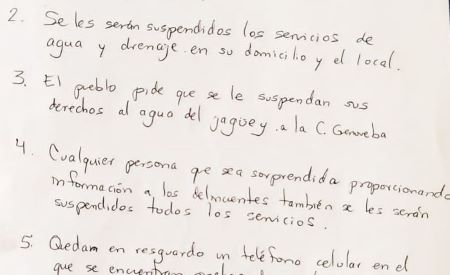 2. Se les serán suspendidos los servicios de
agua y drenaje en su domicilio y el local.
3. El pueblo pide que se le suspendan sus
derechos al agua del jagüey a la C. Genoveba
4. Cualquier persona qe sea sorprendida proporcionando
información a los delincuentes también se les serán
suspendidos todos los servicios.
5. Quedam en resguardo un teléfono celular en el
que se encuentran